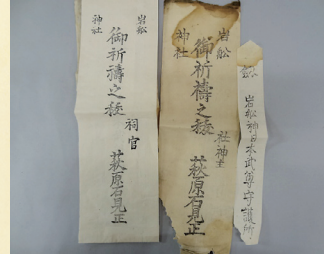 岩舩
神社
御祈禱之祓
祠官
萩原石見正
岩舩
神社
御祈禱之祓
社神主
萩原石見正
岩舩神日本武尊守護所